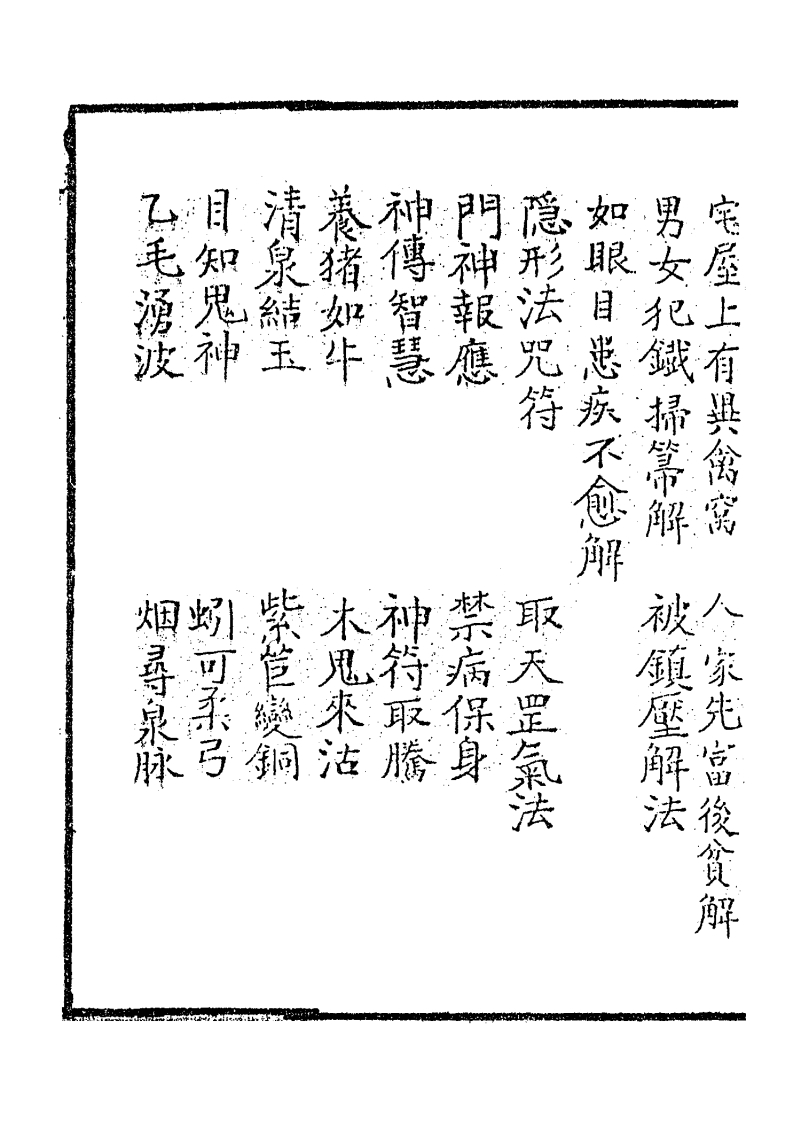 宅屋上有異禽窩 人家先富後貧解
男女犯鐵掃箒解 被鎮壓解法
如眼目患疾不愈解
隐形法咒符 取天罡氣法
門神報應 禁病保身
神傳智慧 神符取騰
養猪如牛 木鬼來沽
清泉結玉 紫笆變銅
目知鬼神 蚓可柔弓
乙毛湧波 烟尋泉脉